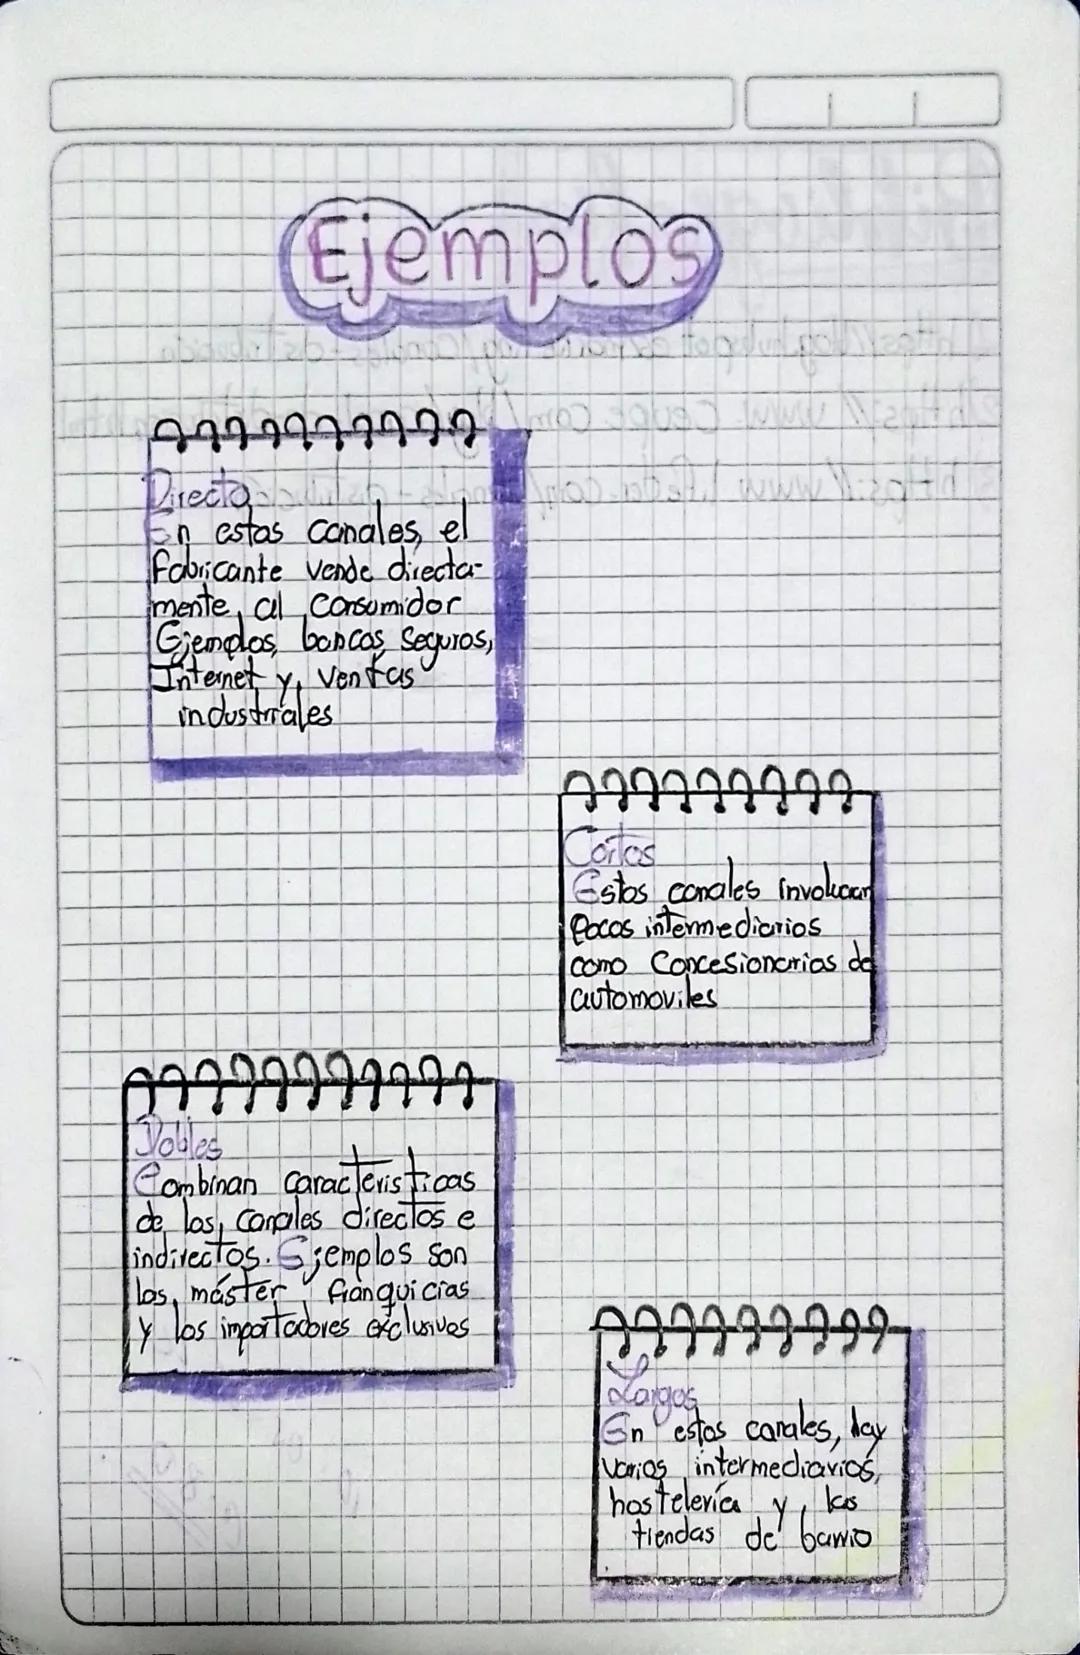 Ejemplos
Directo
En estos canales, el
fabricante vende directa-
mente, al consumidor
Ejemplos, bancos, seguros,
Internet y, ventas
industriales
Cortos
Estos canales involucran
Pocos intermediarios
como Concesionarios de
automoviles
Dobles
Combinan características
de los, canales directos e
indirectos. Ejemplos son
los, máster, franquicias
y los importadores exclusivos
Largos
En estos canales, hay
varios intermediarios,
hostelería y, las
tiendas de barrio